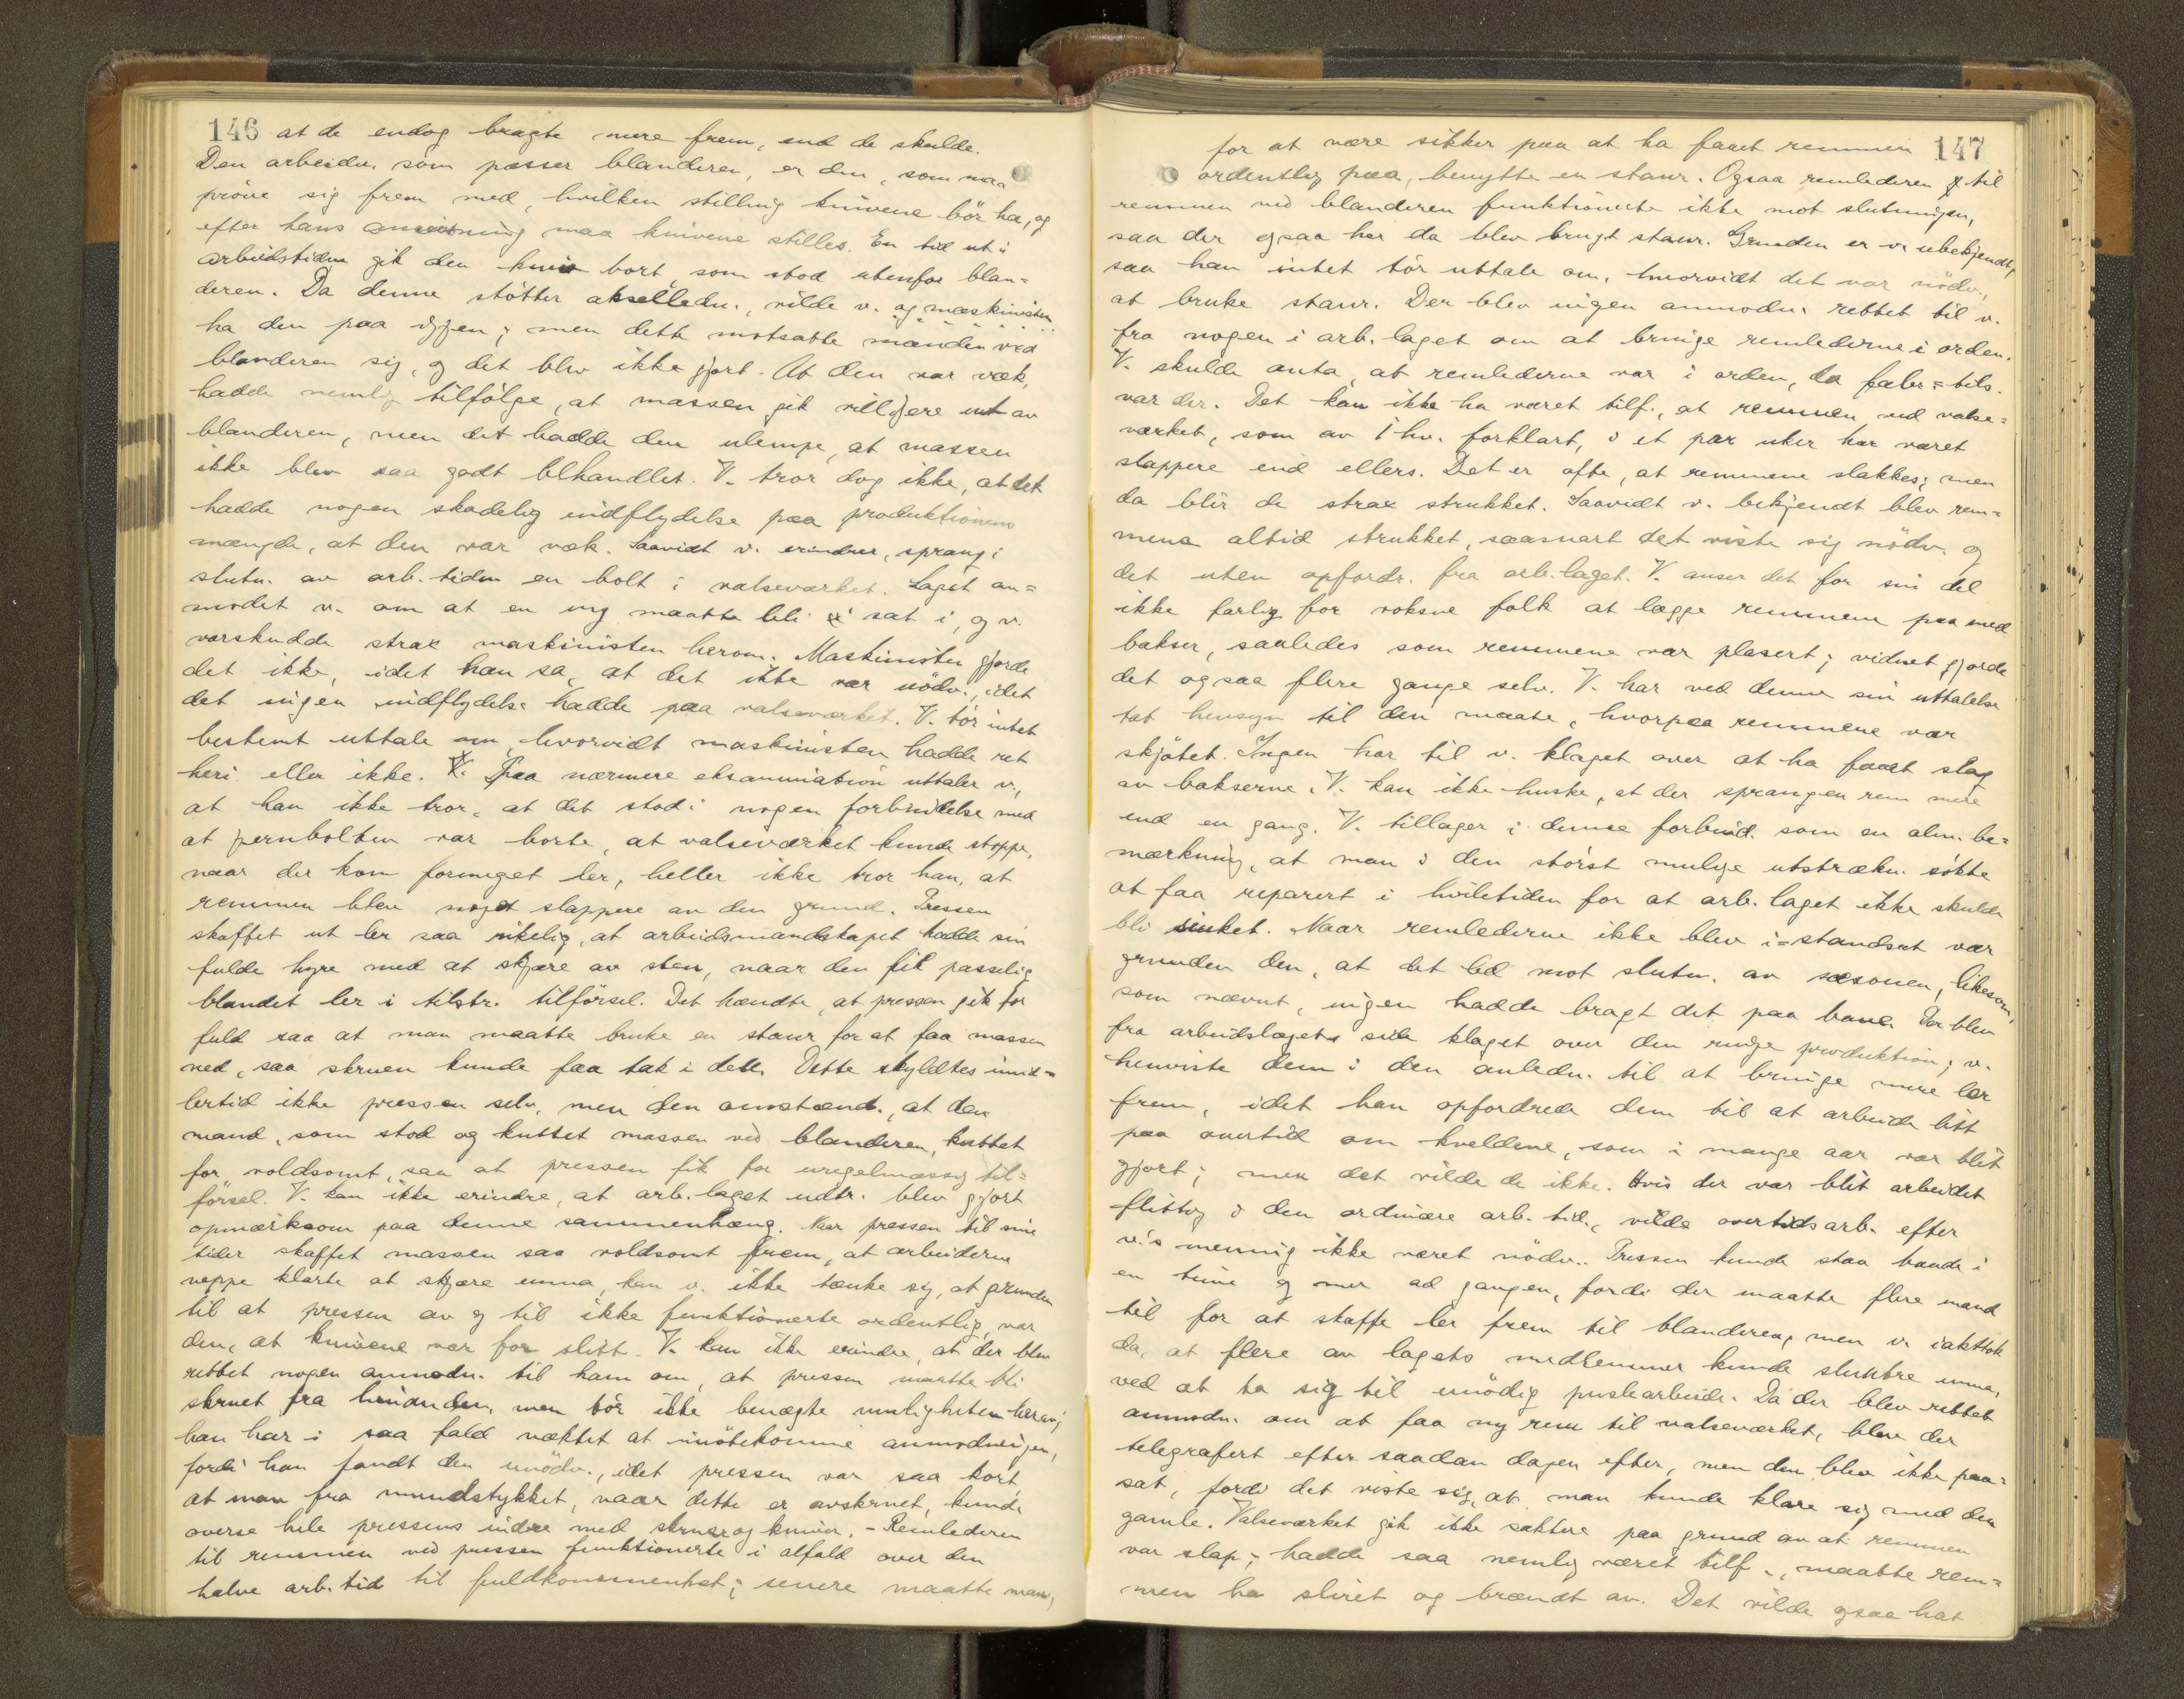 146 at de endog bragte mere frem, end de skulde.
Den arbeidr. som passer blanderen, er den, som maa
prøve sig frem med, hvilken stilling knivene bør ha, og
efter hans anvisning maa knivene stilles. En tid ut i
arbeidstiden gik den kniv bort som stod utenfor blan=
deren. Da denne støtter aksellednr., vilde v. og maskinisten
ha den paa igjen; men dette motsatte manden ved
blanderen sig, og det blev ikke gjort. At den var væk,
hadde nemlig tilfølge, at massen gik villigere ut av
blanderen, men det hadde den ulempe, at massen
ikke blev saa godt behandlet. V. tror dog ikke, at det
hadde nogen skadelig indflydelse paa produktionens
mængde, at den var væk. Saavidt v. erindrer, sprang i
slutn. av arb.tiden en bolt i valseværket. Laget an=
modet v. om at en ny maatte bli sat i, og v.
varskudde strax maskinisten herom. Maskinisten gjorde
det ikke, idet han sa, at det ikke var nödv., idet
det ingen indflydelse hadde paa valseværket. V. tör intet
bestemt uttale om, hvorvidt maskinisten hadde ret
heri eller ikke. Paa nærmere eksamination uttaler v.,
at han ikke tror, at det stod i nogen forbindelse med
at jernbolten var borte, at valseværket kunde stoppe,
naar der kom formeget ler, heller ikke tror han, at
remmen blev noget slappere av den grund. Pressen
skaffet ut ler saa rikelig, at arbeidsmandskapet hadde sin
fulde hyre med at skjære av sten, naar den fik passelig
blandet ler i tilstr. tilförsel. Det hændte, at pressen gik for
fuld saa at man maatte bruke en staur for at faa massen
ned, saa skruen kunde faa tak i dette. Dette skyldtes imid=
lertid ikke pressen selv, men den omstænd., at den
mand, som stod og kuttet massen ved blanderen, kuttet
for voldsomt, saa at pressen fik for uregelmæssig til=
försel. V. kan ikke erindre, at arb.laget udtr. blev gjort
opmærksom paa denne sammenhæng. Naar pressen til sine
tider skaffet massen saa voldsomt frem, at arbeiderne
neppe klarte at skjære unna, kan v. ikke tænke sig, at grunden
til at pressen av og til ikke funktionerte ordentlig, var
den, at knivene var for slitt. V. kan ikke erindre, at der blev
rettet nogen anmodn. til ham om, at pressen maatte bli
skruet fra hinanden, men tör ikke benægte muligheten herav;
han har i saa fald vægtet at imötekomme anmodningen,
fordi han fandt den unödv., idet pressen var saa kort,
at man fra mundstykket, naar dette er avskruet, kunde
overse hele pressens indre med skruer og kniver. - Remlederen
til remmen ved pressen funktionerte i alfald over den
halve arb.tid til fuldkommenhet; senere maatte man,
for at være sikker paa at ha faaet remmen 147
ordentlig paa, benytte en staur. Ogsaa remlederen til
remmen ved blanderen funktionerte ikke mot slutningen,
saa der ogsaa her da blev brugt staur. Grunden er v. ubekjendt,
saa han intet tör uttale om, hvorvidt det var nödv.,
at bruke staur. Der blev ingen anmodn. rettet til v.
fra nogen i arb.laget om at bringe remlederne i orden.
V. skulde anta, at remlederne var i orden, da fabr.=tils.
var der. Det kan ikke ha været tilf., at remmen ved valse=
værket, som av 1 hv. forklart, i et par uker har været
slappere end ellers. Det er ofte, at remmene slakkes; men
da blir de strax strukket. Saavidt v. bekjendt blev rem=
mene altid strukket, saasnart det viste sig nödv. og
det uten opfordr. fra arb.laget. V. anser det for sin del
ikke farlig for voksne folk at lægge remmene paa med
bakser, saaledes som remmene var plasert; vidnet gjorde
det ogsaa flere gange selv. V. har ved denne sin uttalelse
tat hensyn til den maate, hvorpaa remmene var
skjøtet. Ingen har til v. klaget over at ha faaet slag
av bakserne. V. kan ikke huske, at der sprang en rem mere
end en gang. V. tillager i denne forbind. som en alm. be=
mærkning, at man i den störst mulige utstrækn. sökte
at faa reparert i hviletiden for at arb.laget ikke skulde
bli sinket. Naar remlederne ikke blev i=standsat var
grunden den, at det led mot slutn. av sæsonen, likesom,
som nævnt, ingen hadde bragt det paa bane. Der blev
fra arbeidslagets side klaget over den ringe produktion; v.
henviste dem i den anledn. til at bringe mere ler
frem, idet han opfordrede dem til at arbeide litt
paa overtid om kveldene, som i mange aar var blit
gjort; men det vilde de ikke. Hvis der var blit arbeidet
flittig i den ordinære arb.tid, vilde overtidsarb. efter
v.'s mening ikke været nödv.. Pressen kunde staa baade i
en time og mer ad gangen, fordi der maatte flere mand
til for at skaffe ler frem til blanderen, men v. iakttok
da, at flere av lagets medlemmer kunde sluntre unna,
ved at ta sig til unödig puslearbeide. Da der blev rettet
anmodn. om at faa ny rem til valseværket, blev der
telegrafert efter saadan dagen efter, men den blev ikke paa=
sat, fordi det viste sig, at man kunde klare sig med den
gamle. Valseværket gik ikke saktere paa grund av at remmen
var slap; hadde saa nemlig været tilf., maatte rem=
men ha sluret og brændt av. Det vilde ogsaa hat